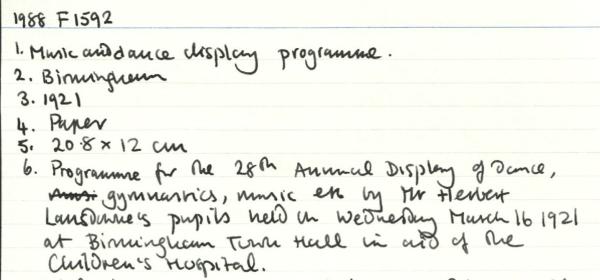 1988 F1592
1. Music and dance display programme.
2. Birmingham
3. 1921
4. Paper
5. 20.8 x 12 cm
6. Programme for the 28th Annual Display of Dance,
gymnastics, music etc by Mr Herbert
Lansdowne's pupils held on Wednesday March 16 1921
at Birmingham Town Hall in aid of the
Children's Hospital.